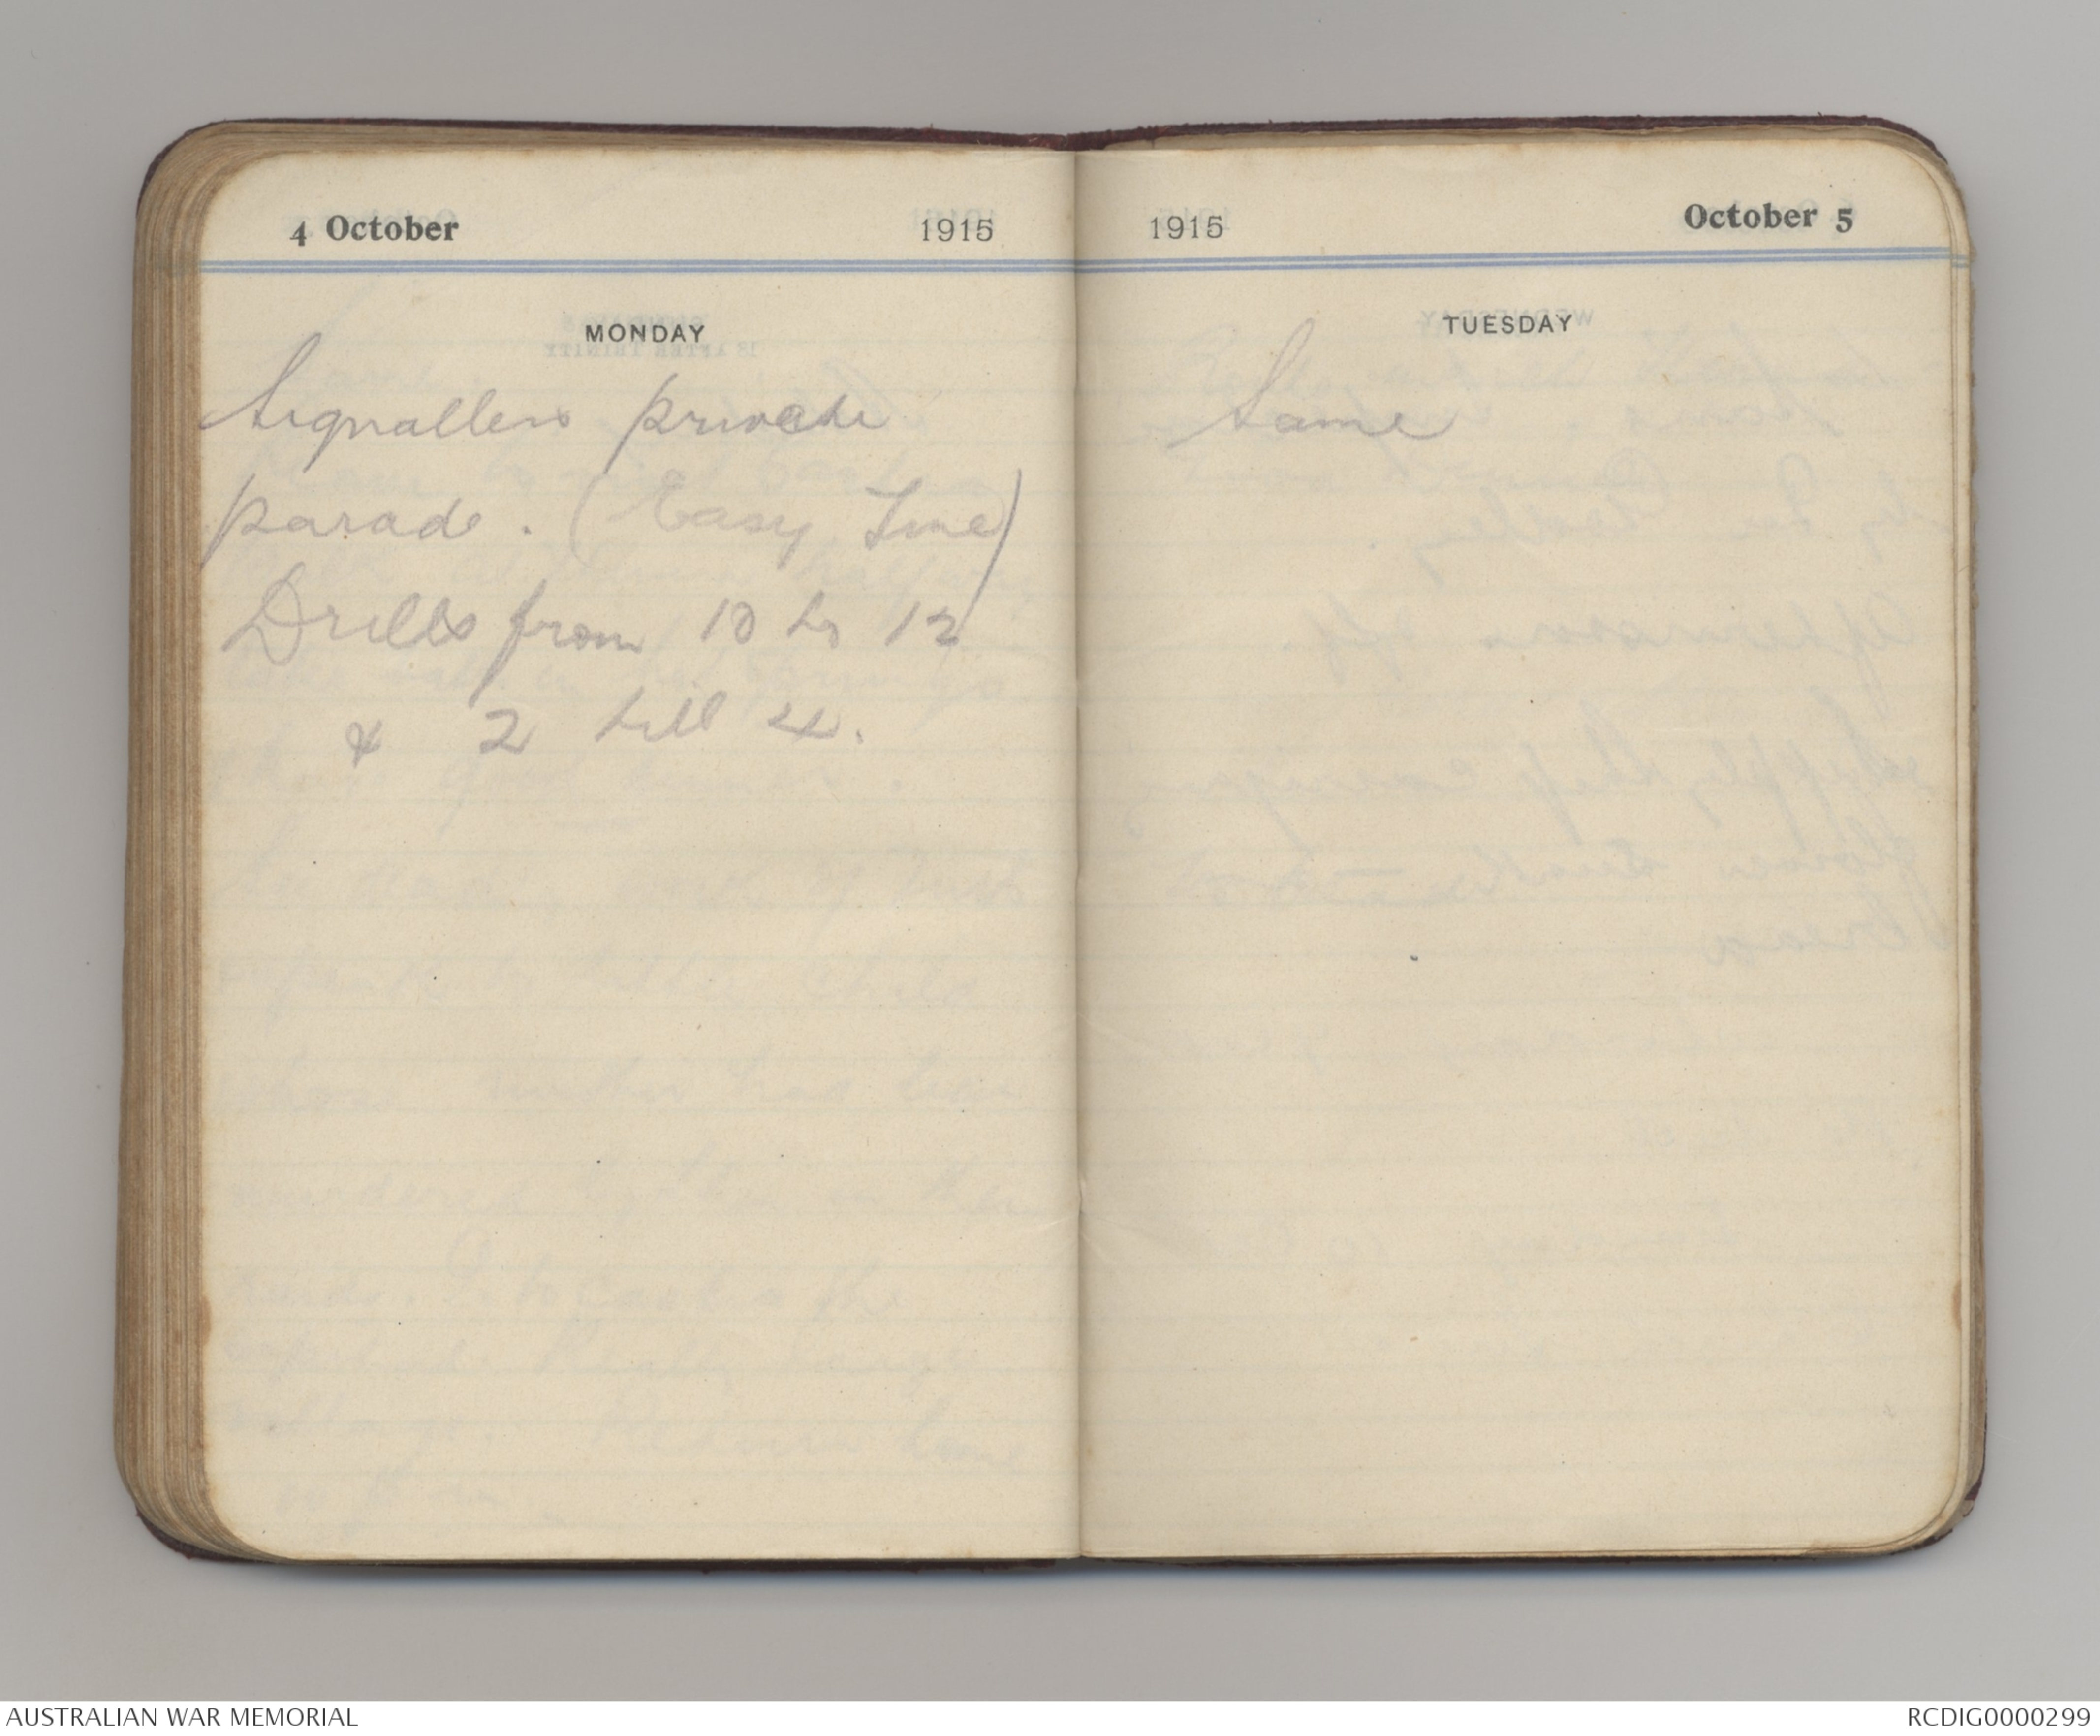 4 October 1915
MONDAY
Signallers private
parade. (Easy Time)
Drills from 10 to 12
& 2 till 4.
1915 October 5
TUESDAY
Same
AUSTRALIAN WAR MEMORIAL
RCDIG0000299